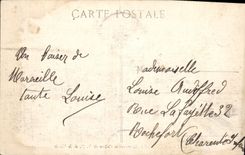 CARTE POSTALE
Un baiser de
Marseille
tante Louise
Mademoiselle
Louise
Rue Lafayette 32
Rochefort